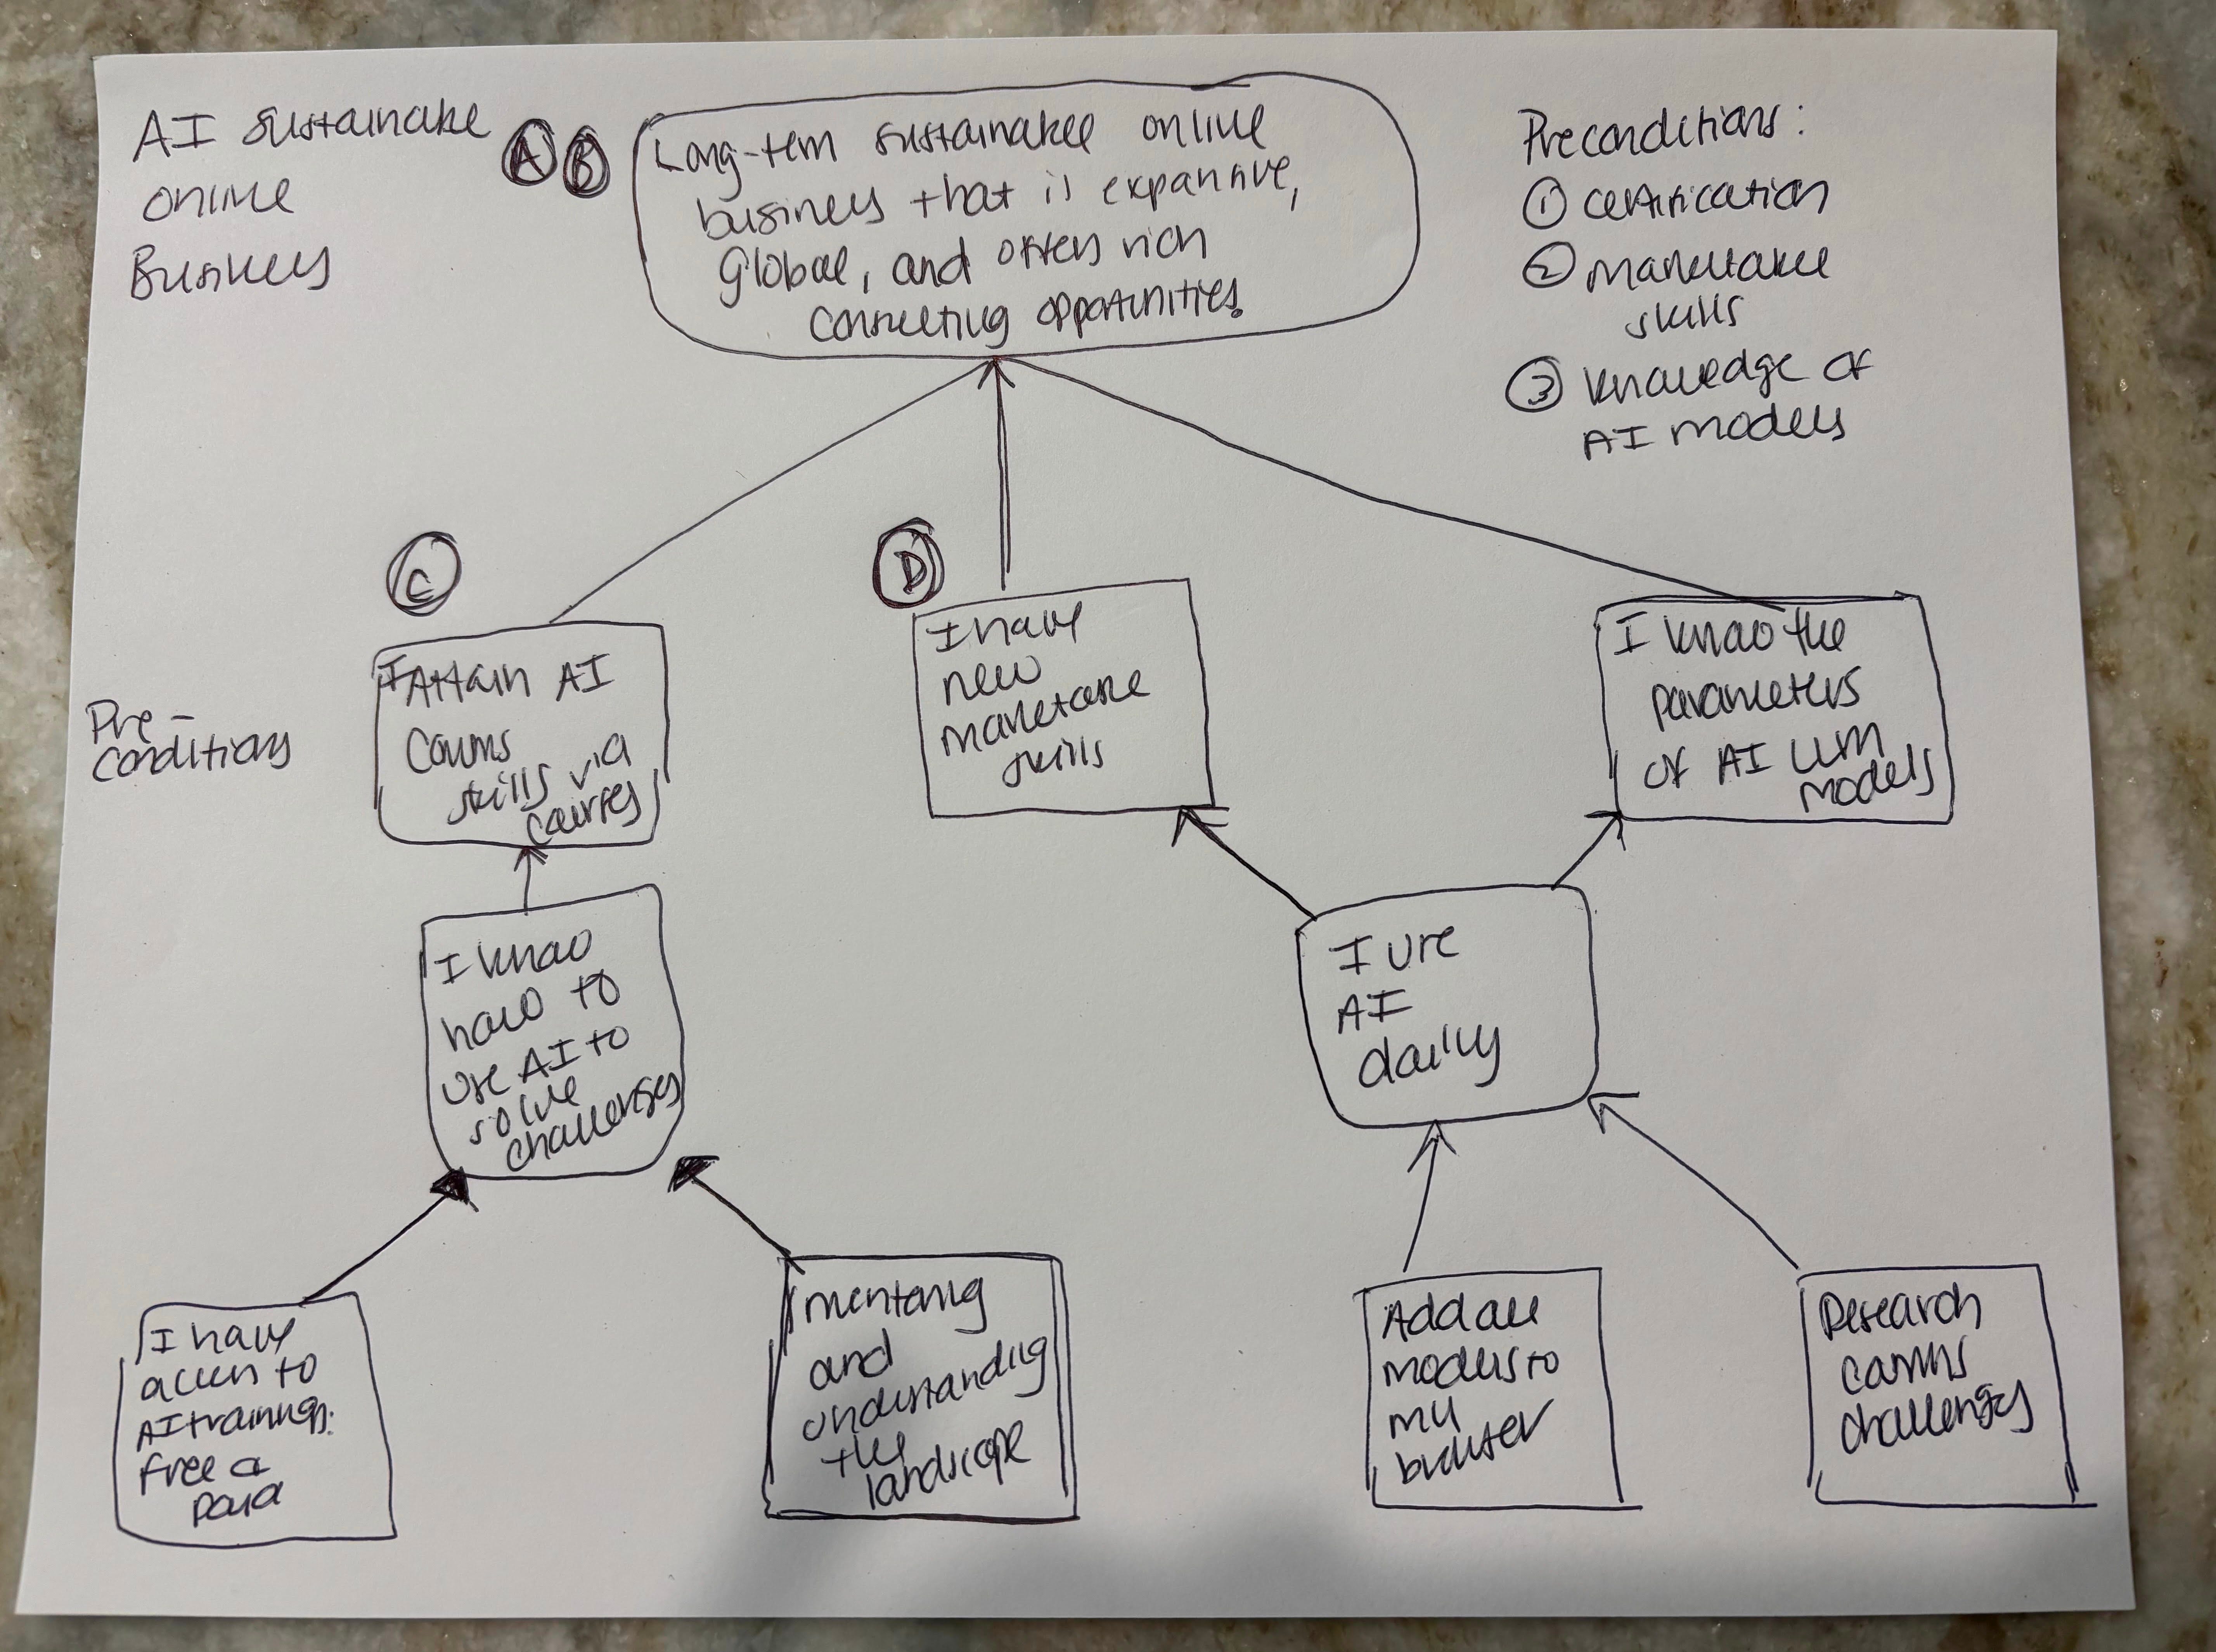 AI Sustainable
Online
Business
A B
Long-term sustainable online
business that is expansive,
global, and offers rich
connecting opportunities.
Preconditions:
① certification
② marketable
skills
③ knowledge of
AI models
C
I Attain AI
Comms
skills via
courses
D
I have
new
marketable
skills
I know the
parameters
of AI LLM
models
Pre-
conditions
I know
how to
use AI to
solve
challenges
I use
AI
daily
I have
access to
AI trainings:
free or
paid
mentoring
and
understanding
the
landscape
Add all
models to
my
browser
Research
comms
challenges